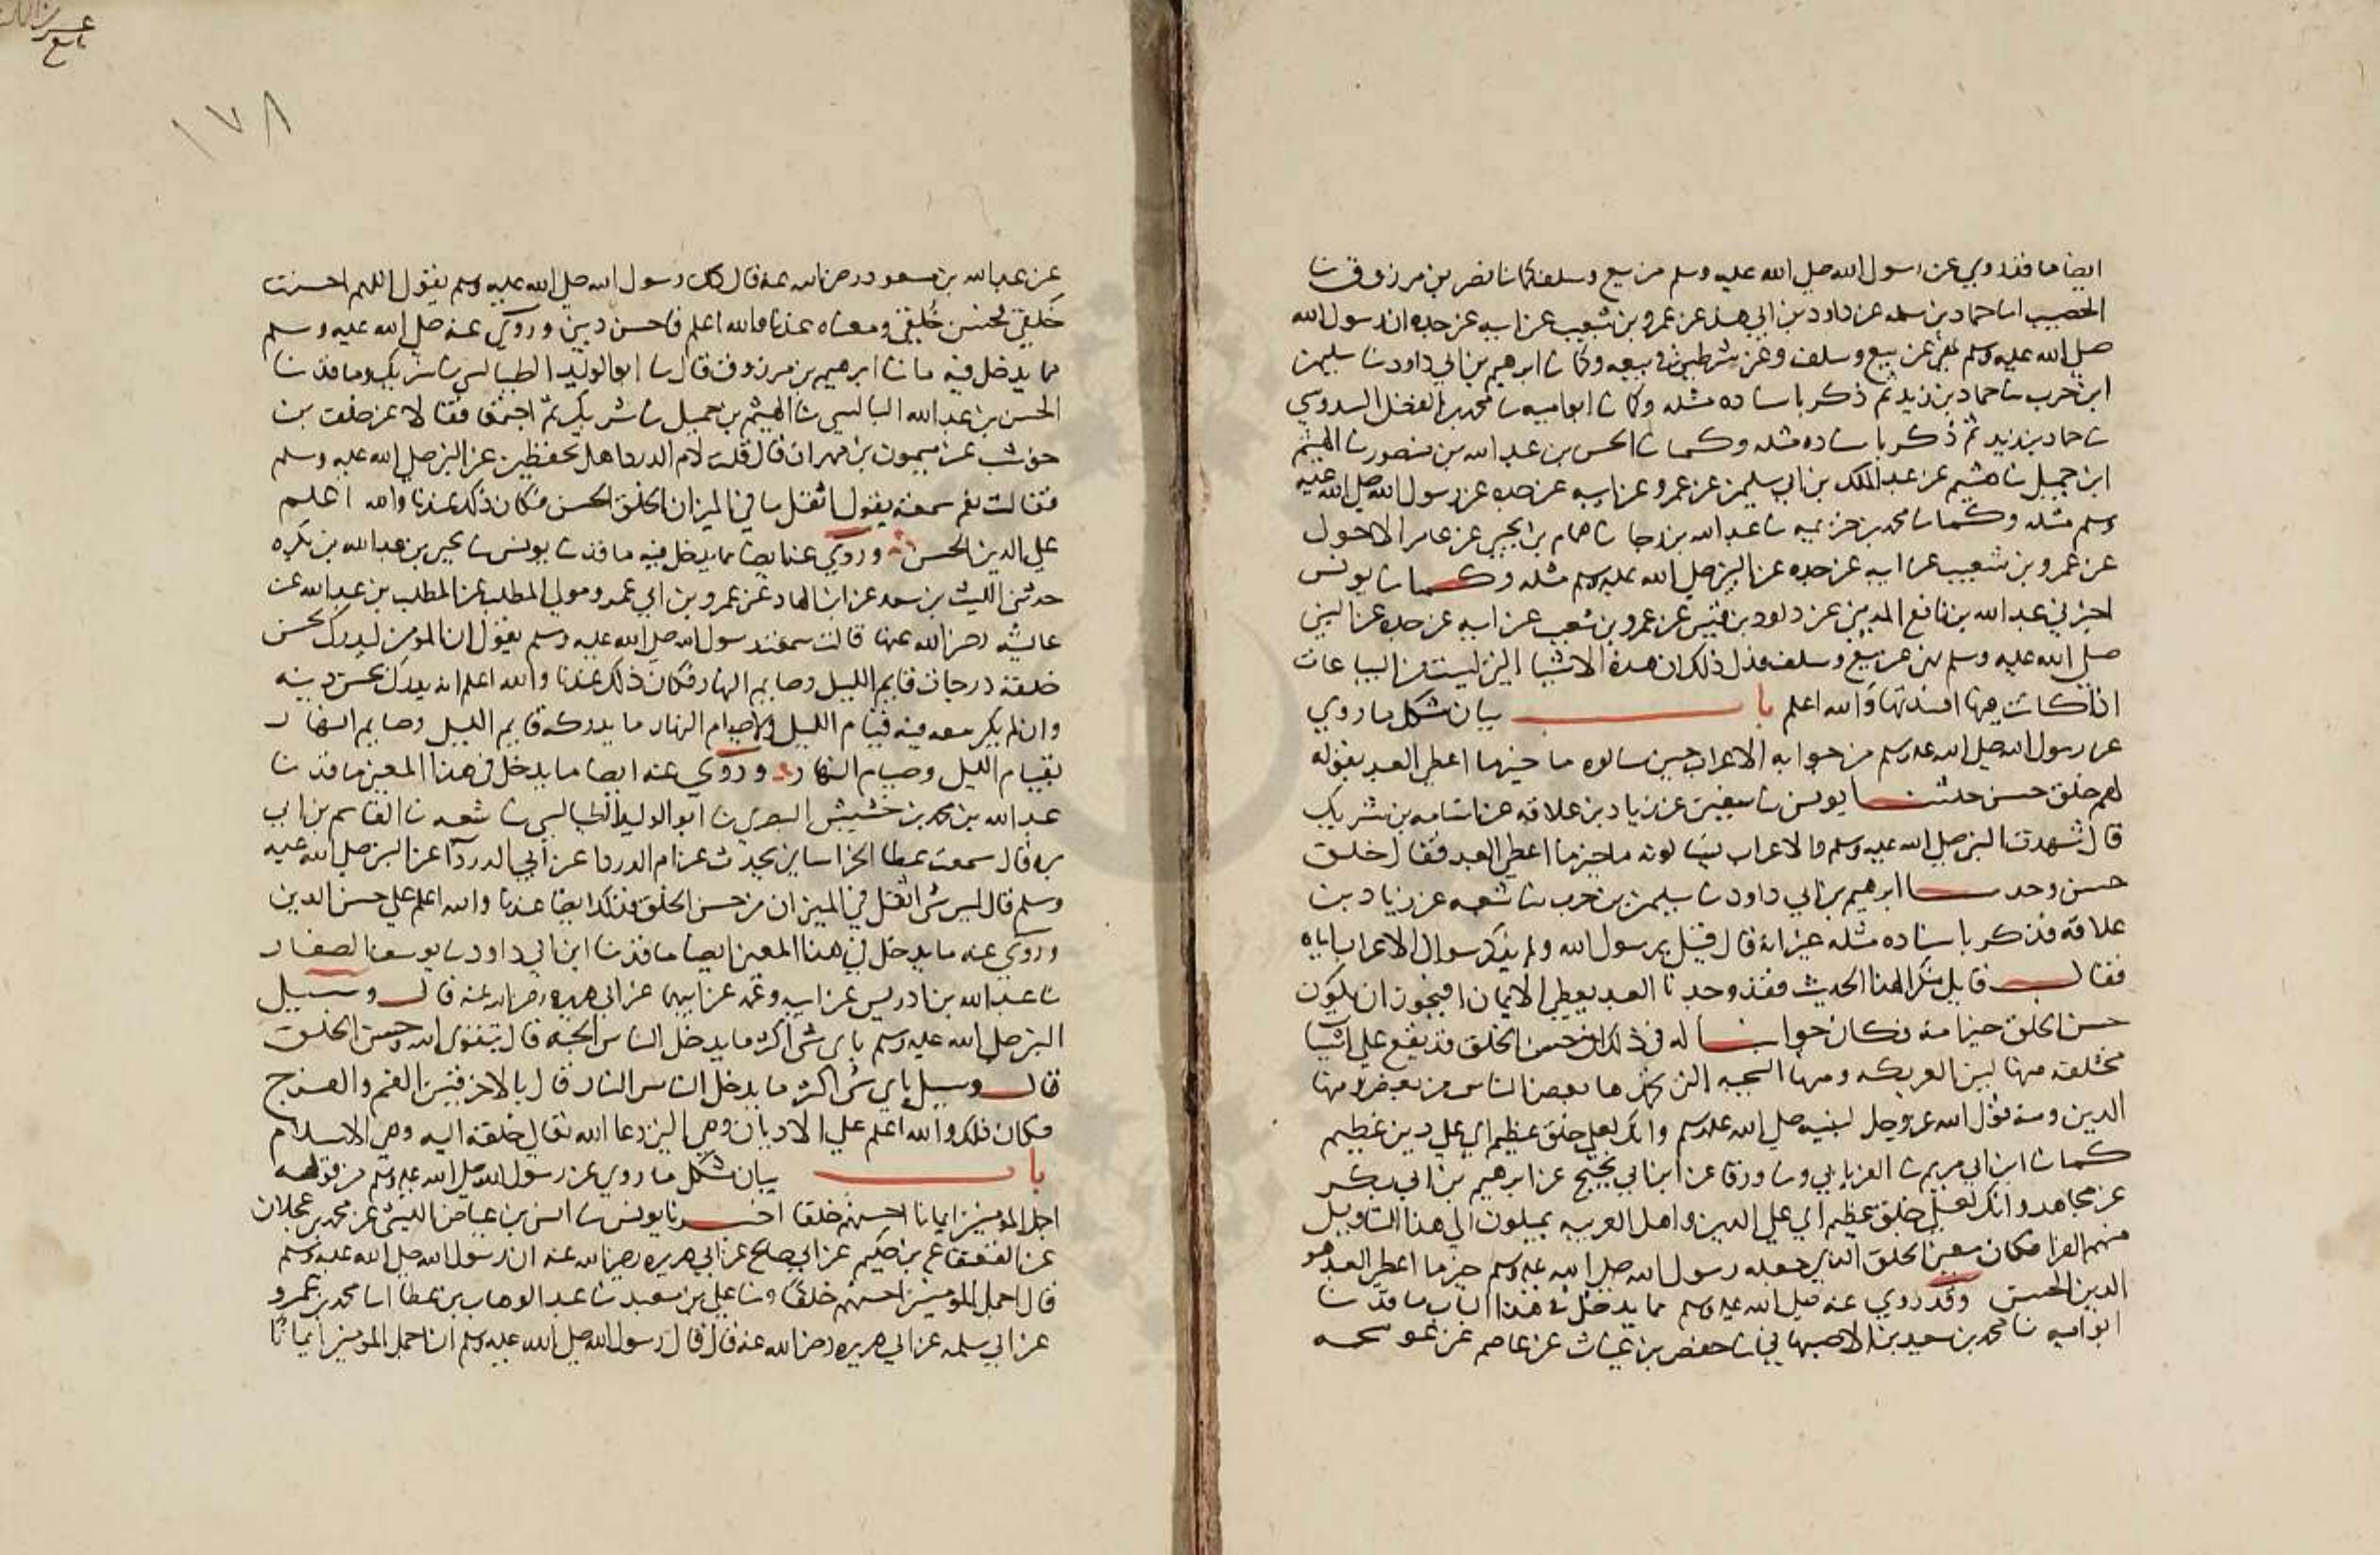 ايضا ما قد روي عن رسول الله صلى الله عليه وسلم من بيع وسلف كما نا نصر بن مرزوق نا
الخصيب انا حماد بن سلمه عن داود بن ابي هند عن عمرو بن شعيب عن ابيه عن جده ان رسول الله
صلى الله عليه وسلم نهى عن بيع وسلف وعن شرطين في بيعه وكما نا ابرهيم بن ابي داود نا سليمن
ابن حرب نا حماد بن زيد ثم ذكر باسناده مثله وكما نا ابو اميه نا محمد بن الفضل السدوسي
نا حماد بن زيد ثم ذكر باسناده مثله وكما نا الحسن بن عبد الله بن منصور نا الهيثم
ابن جميل نا هشيم عن عبد الملك بن ابي سليمن عن عمرو عن ابيه عن جده عن رسول الله صلى الله عليه
وسلم مثله وكما نا محمد بن خزيمه نا عبد الله بن رجا نا همام بن يحيى عن عامر الاحول
عن عمرو بن شعيب عن ابيه عن جده عن النبي صلى الله عليه وسلم مثله وكما نا يونس
اخبرني عبد الله بن نافع المديني عن داود بن قيس عن عمرو بن شعيب عن ابيه عن جده عن النبي
صلى الله عليه وسلم نهى عن بيع وسلف فدل ذلك ان هذه الاشيا التي ليست من البياعات
اذا كانت فيها افسدتها والله اعلم باب بيان مشكل ما روي
عن رسول الله صلى الله عليه وسلم من جوابه الاعراب حين سالوه ما خير ما اعطي العبد بقوله
لهم خلق حسن حدثنا يونس نا سفين عن زياد بن علاقه عن اسامه بن شريك
قال شهدت النبي صلى الله عليه وسلم والاعراب يسالونه ما خير ما اعطي العبد فقال خلق
حسن وحدثنا ابرهيم بن ابي داود نا سليمن بن حرب نا شعبه عن زياد بن
علاقه فذكر باسناده مثله غير انه قال قيل يرسول الله ولم يذكر سوال الاعراب اياه
فقال قايل منكر لهذا الحديث فقد وجدنا العبد يعطي الايمان افيجوز ان يكون
حسن الخلق خيرا منه فكان جوابنا له في ذلك ان حسن الخلق قد يقع على اشيا
مختلفه منها لين العريكه ومنها السجيه التي يحمل بها بعض الناس من بعض ومنها
الدين ومنه قول الله عز وجل لنبيه صلى الله عليه وسلم وانك لعلى خلق عظيم اي على دين عظيم
كما نا ابن ابي مريم نا الفريابي ونا ورقا عن ابن ابي نجيح عن ابرهيم بن ابي بكر
عن مجاهد وانك لعلى خلق عظيم اي على الدين واهل العربيه يميلون الى هذا التاويل
منهم الفرا فكان معنى الخلق الذي جعله رسول الله صلى الله عليه وسلم خير ما اعطي العبد هو
الدين الحسن وقد روي عنه صلى الله عليه وسلم مما يدخل في هذا الباب ما قد نا
ابو اميه نا محمد بن سعيد بن الاصبهاني نا حفص بن غياث عن عاصم عن عوسجه
١٧٨
عن عبد الله بن مسعود رضي الله عنه قال كان رسول الله صلى الله عليه وسلم يقول اللهم احسنت
خلقي فحسن خلقي ومعناه عندنا والله اعلم فاحسن ديني وروي عنه صلى الله عليه وسلم
مما يدخل فيه ما نا ابرهيم بن مرزوق قال نا ابو الوليد الطيالسي نا شريك وما قد نا
الحسن بن عبد الله البالسي نا الهيثم بن جميل نا شريك ثم اجتمعا فقالا عن خلف بن
حوشب عن ميمون بن مهران قال قلت لام الدردا هل تحفظين عن النبي صلى الله عليه وسلم
فقالت نعم سمعته يقول اثقل ما في الميزان الخلق الحسن فكان ذلك عندنا والله اعلم
على الدين الحسن وروي عنه ايضا مما يدخل فيه ما قد نا يونس نا يحيى بن عبد الله بن بكير
حدثني الليث بن سعد عن ابن الهاد عن عمرو بن ابي عمرو مولى المطلب عن المطلب بن عبد الله عن
عايشه رضي الله عنها قالت سمعت رسول الله صلى الله عليه وسلم يقول ان المومن ليدرك بحسن
خلقه درجات قايم الليل وصايم النهار فكان ذلك عندنا والله اعلم انه يدرك بحسن دينه
وان لم يكن معه فيه قيام الليل ولا صيام النهار ما يدركه قايم الليل وصايم النهار
بقيام الليل وصيام النهار وروي عنه ايضا ما يدخل في هذا المعنى ما قد نا
عبد الله بن محمد بن خشيش البصري نا ابو الوليد الطيالسي نا شعبه نا القاسم بن ابي
بزه قال سمعت عطا الخراساني يحدث عن ام الدردا عن ابي الدردا عن النبي صلى الله عليه
وسلم قال ليس شي اثقل في الميزان من حسن الخلق فذلك ايضا عندنا والله اعلم على حسن الدين
وروي عنه ما يدخل في هذا المعنى ايضا ما قد نا ابن ابي داود نا يوسف الصفار
نا عبد الله بن ادريس عن ابيه وعمه عن ابيهما عن ابي هريره رضي الله عنه قال وسيل
النبي صلى الله عليه وسلم باي شي اكثر ما يدخل الناس الجنه قال بتقوى الله وحسن الخلق
قال وسيل باي شي اكثر ما يدخل الناس النار قال بالاجوفين الفم والفرج
فكان ذلك والله اعلم على الاديان وهي التي دعا الله تعالى خلقه اليه وهي الاسلام
باب بيان مشكل ما روي عن رسول الله صلى الله عليه وسلم من قوله
اكمل المومنين ايمانا احسنهم خلقا اخبرنا يونس نا انس بن عياض الليثي عن محمد بن عجلان
عن القعقاع بن حكيم عن ابي صالح عن ابي هريره رضي الله عنه ان رسول الله صلى الله عليه وسلم
قال اكمل المومنين احسنهم خلقا ونا علي بن معبد نا عبد الوهاب بن عطا انا محمد بن عمرو
عن ابي سلمه عن ابي هريره رضي الله عنه قال قال رسول الله صلى الله عليه وسلم ان اكمل المومنين ايمانا